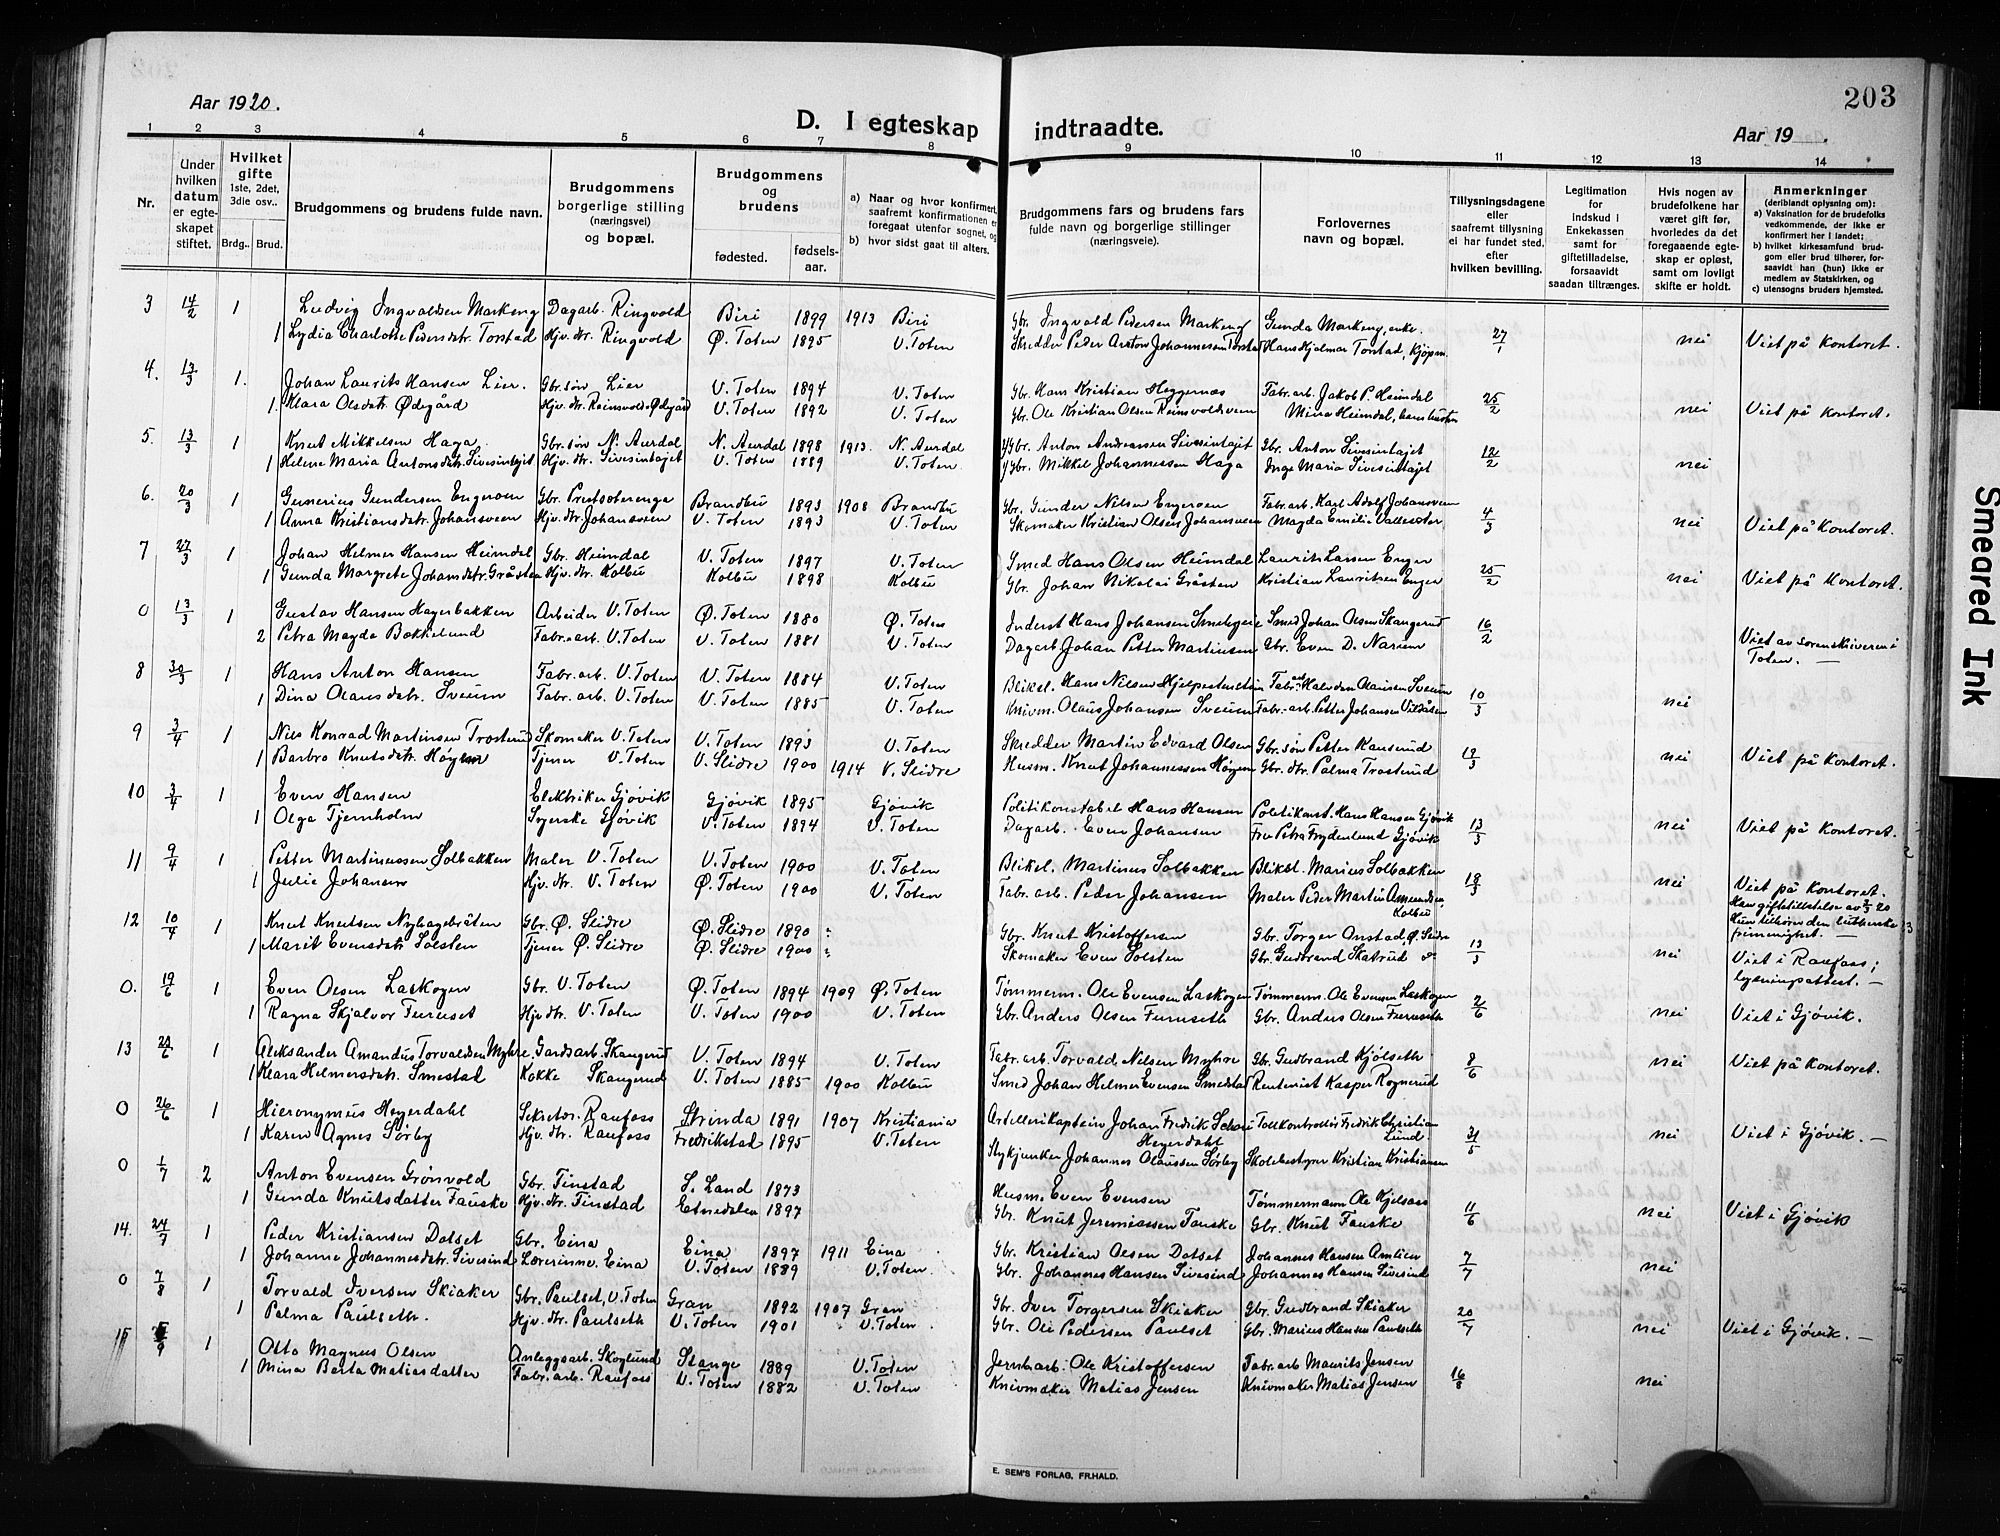 203
Aar 1920.
D. I egteskap indtraadte.
Aar 19
1 2 3 4 5 6 7 8 9 10 11 12 13 14
Nr.
Under hvilken datum er egte-skapet stiftet.
Hvilket gifte 1ste, 2det, 3die osv..
Brdg.. Brud.
Brudgommens og brudens fulde navn.
Brudgommens borgerlige stilling (næringsvei) og bopæl.
Brudgommens og brudens
fødested. fødsels-aar.
a) Naar og hvor konfirmert, saafremt konfirmationen er foregaat utenfor sognet, og
b) hvor sidst gaat til alters.
Brudgommens fars og brudens fars fulde navn og borgerlige stillinger (næringsveie).
Forlovernes navn og bopæl.
Tillysningsdagene eller saafremt tillysning ei har fundet sted, efter hvilken bevilling.
Legitimation for indskud i Enkekassen samt for giftetilladelse, forsaavidt saadan tiltrænges.
Hvis nogen av brudefolkene har været gift før, hvorledes da det foregaaende egte-skap er opløst, samt om lovligt skifte er holdt.
Anmerkninger (deriblandt oplysning om):
a) Vaksination for de brudefolks vedkommende, der ikke er konfirmert her i landet;
b) hvilket kirkesamfund brud-gom eller brud tilhører, for-saavidt han (hun) ikke er medlem av Statskirken, og
c) utensogns bruders hjemsted.
3 14/2 1 Ludvig Ingvaldsen Markeng Dagarb. Ringvold Biri 1899 1913 Biri Gbr. Ingvald Pedersen Markeng Gunda Markeng, enke. 27/1 nei Viet på Kontoret.
1 Lydia Charlotte Pedersdtr. Torstad Hjv. dtr. Ringvold Ø. Toten 1895 V. Toten Skredder Peder Anton Johannesen Torstad Hans Hjalmar Torstad, Kjøpm.
4. 13/3 1. Johan Laurits Hansen Lier. Gbr. søn Lier V. Toten 1894 V. Toten Gbr. Hans Kristian Heggernæs Fabr. arb. Jakob P. Heimdal 25/2 nei Viet på Kontoret.
1. Klara Olsdtr. Ødegård Hjv. dtr. Reinsvold-Ødegård V. Toten 1892 V. Toten Gbr. Ole Kristian Olsen Reinsvoldsveen Mina Heimdal,
5. 13/3 1 Knut Mikkelsen Haga Gbr. søn N. Aurdal N. Aurdal 1898 1913. N. Aurdal Gbr. Anton Andreassen Sivesintajet Gbr. Anton Sivesintajet 12/2 nei
1 Helene Maria Antonsdtr. Sivesintajet Hjv. dtr. Sivesintajet V. Toten 1889 V. Toten. Gbr. Mikkel Johannessen Haga Inga Maria Sivesintajet
6. 20/3 1 Gunerius Gundersen Engeroen Gbr. Prestsæterenga Brandbu 1893 1908 Brandbu Gbr. Gunder Nilsen Engeroen Fabr. arb. Karl Adolf Johansveen 4/3 nei Viet på Kontoret.
1 Anna Kristiansdtr. Johansveen Hjv. dtr. Johansveen V. Toten 1893 V. Toten Skomaker Kristian Olsen Johansveen Magda Emilie Vallesæter
7 27/3 1 Johan Helmer Hansen Heimdal Gbr. Heimdal V. Toten 1897 V. Toten Smed Hans Olsen Heimdal Laurits Larsen Enger 25/2 nei Viet på Kontoret.
1 Gunda Margrete Johansdtr. Gråsten Hjv. dtr. Kolbu Kolbu 1898 Kolbu Gbr. Johan Nikolai Gråsten Kristian Lauritsen Enger
0 13/3 1 Gustav Hansen Hagerbakken Arbeider V. Toten Ø. Toten 1880 Ø. Toten Inderst Hans Johansen Smeby Smed Johan Olsen Skangerud 16/2
2 Petra Magda Bækkelund Fabr. arb. V. Toten V. Toten 1881 V. Toten Dagarb. Johan Petter Martinsen Gbr. Even D. Narum Viet av sorenskriveren i Toten. —
8 30/3 1 Hans Anton Hansen Fabr. arb. V. Toten V. Toten 1884 V. Toten Bliksl. Hans Nilsen Hjelpestustun Fabr. arb. Halvdan Olausen Sveum 10/3 nei
1 Dina Olausdtr. Sveum Fabr. arb. V. Toten V. Toten 1885 V. Toten Knivm. Olaus Johansen Sveum Fabr. arb. Petter Johansen Vildåsen
9 3/4 1 Nils Konrad Martinsen Trosterud Skomaker V. Toten V. Toten 1893 V. Toten Skredder Martin Edvard Olsen Gbr. søn Petter Kauserud 19/3 nei Viet på Kontoret.
1 Barbro Knutsdtr. Høyen Tjener V. Toten V. Slidre 1900 1914 V. Slidre Husm. Knut Johannessen Høyen Gbr. dtr. Palma Trosterud
10 3/4 1 Even Hansen Elektriker Gjøvik Gjøvik 1895 Gjøvik Politikonstabel Hans Hansen Politikonst. Hans Hansen Gjøvik 13/3 nei Viet på Kontoret.
1 Olga Tjernholm Syerske Gjøvik V. Toten 1894 V. Toten Dagarb. Even Johansen Fru Petra Frydenlund Gjøvik
11 9/4 1 Petter Martinussen Solbakken Maler V. Toten V. Toten 1900 V. Toten Bliksl. Martinus Solbakken Bliksl. Marius Solbakken 18/3 nei Viet på Kontoret.
1 Julie Johansen Hjv. dtr. V. Toten Ø. Toten 1900 V. Toten Fabr. arb. Peder Johansen Maler Peder Martin Amundsen Kolbu Han giftetilladelse av 2/3 20 Hun tilhører den lutherske frimenighet. —
12 10/4 1 Knut Knutsen Nyhagebråten Gbr. Ø. Slidre Ø. Slidre 1890 " Gbr. Knut Kristoffersen Gbr. Torger Onstad, Ø. Slidre 13/3 nei Viet i Raufoss;
1 Marit Evensdtr. Solsten Tjener Ø. Slidre Ø. Slidre 1900 " Skomaker Even Solsten Gbr. Gudbrand Skattrud do lysningsattest. —
0. 19/6 1 Even Olsen Laskogen Gbr. V. Toten Ø. Toten 1894 1909 Ø. Toten Tømmerm. Ole Evensen Laskogen Tømmerm. Ole Evensen Laskogen 2/6 nei Viet i Gjøvik.
1 Ragna Skjalvor Furuset Hjv. dtr. V. Toten V. Toten 1900 V. Toten Gbr. Anders Olsen Furuseth Gbr. Anders Olsen Furuseth
13 1 Aleksander Amandus Torvaldsen Myhre Gardsarb. Skangerud V. Toten 1894 V. Toten Fabr. arb. Torvald Nilsen Myhre Gbr. Gudbrand Kjølseth 8/6 nei Viet på Kontoret.
1 Klara Helmersdtr. Smestad Kokke Skangerud V. Toten 1885 1900 Kolbu Smed Johan Helmer Evensen Smedstad Rentenist Kasper Rognerud
0 26/6 1 Hieronymus Heyerdahl Sekretær Raufoss Strinda 1891 1907 Kristiania Artillerikaptein Johan Fredrik Schou Heyerdahl Tollkontrollør Fredrik Christian Lund. 31/5 nei Viet i Gjøvik. —
1 Karen Agnes Sørby Hjv. dtr. Raufoss Fredrikstad 1895 V. Toten Stykjunker Johannes Olaussen Sørby Skolebestyrer Kristian Kristiansen
0 1/7 2 Anton Evensen Grønvold Gbr. Finstad S. Land 1873 Husm. Even Evensen Tømmermann Ole Kjelsaas 11/6 nei Viet i Gjøvik
1 Gunda Knutsdatter Fauske Hjv. dtr. Finstad Etnedalen 1897 Gbr. Knut Jeremiassen Fauske Gbr. Knut Fauske
14. 24/7 1 Peder Kristiansen Dalset Gbr. Eina Eina 1897 1911 Eina Gbr. Kristian Olsen Dalset Johannes Hansen Amlien 7/7 nei
1 Johanne Johannesdtr. Sivesind Lærerinne. Eina V. Toten 1889 V. Toten. Gbr. Johannes Hansen Sivesind Johannes Hansen Sivesind
0 7/8 1 Torvald Iversen Skiaker Gbr. Paulset, V. Toten Gran 1892 1907 Gran Gbr. Iver Torgersen Skiaker Gbr. Gudbrand Skiaker 20/7 nei Viet i Gjøvik. —
1 Palma Paulseth. Hjv. dtr. Paulseth V. Toten 1901 V. Toten. Gbr. Ole Pedersen Paulset Gbr. Marius Hansen Paulseth
15 1 Otto Magnus Olsen Anleggsarb. Skoglund Stange 1889 V. Toten Jernb. arb. Ole Kristoffersen Fabr. arb Maurits Jensen 16/8 nei
1 Mina Berta Matiasdatter Fabr. arb. Raufoss V. Toten 1882 V. Toten Knivmaker Matias Jensen Knivmaker Matias Jensen
E. SEM'S FORLAG, FR.HALD.
Smeared Ink